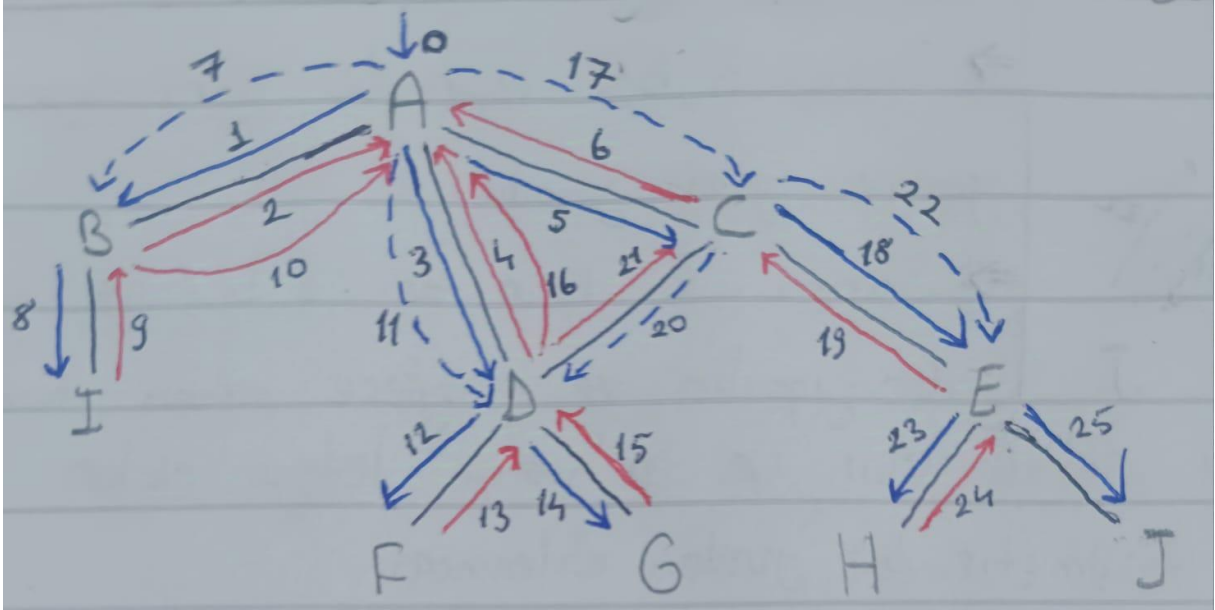 0
7
17
A
1
6
2
5
22
B
C
10
3
4
16
21
18
8
9
11
20
19
I
D
E
12
15
23
25
13
14
24
F
G
H
J